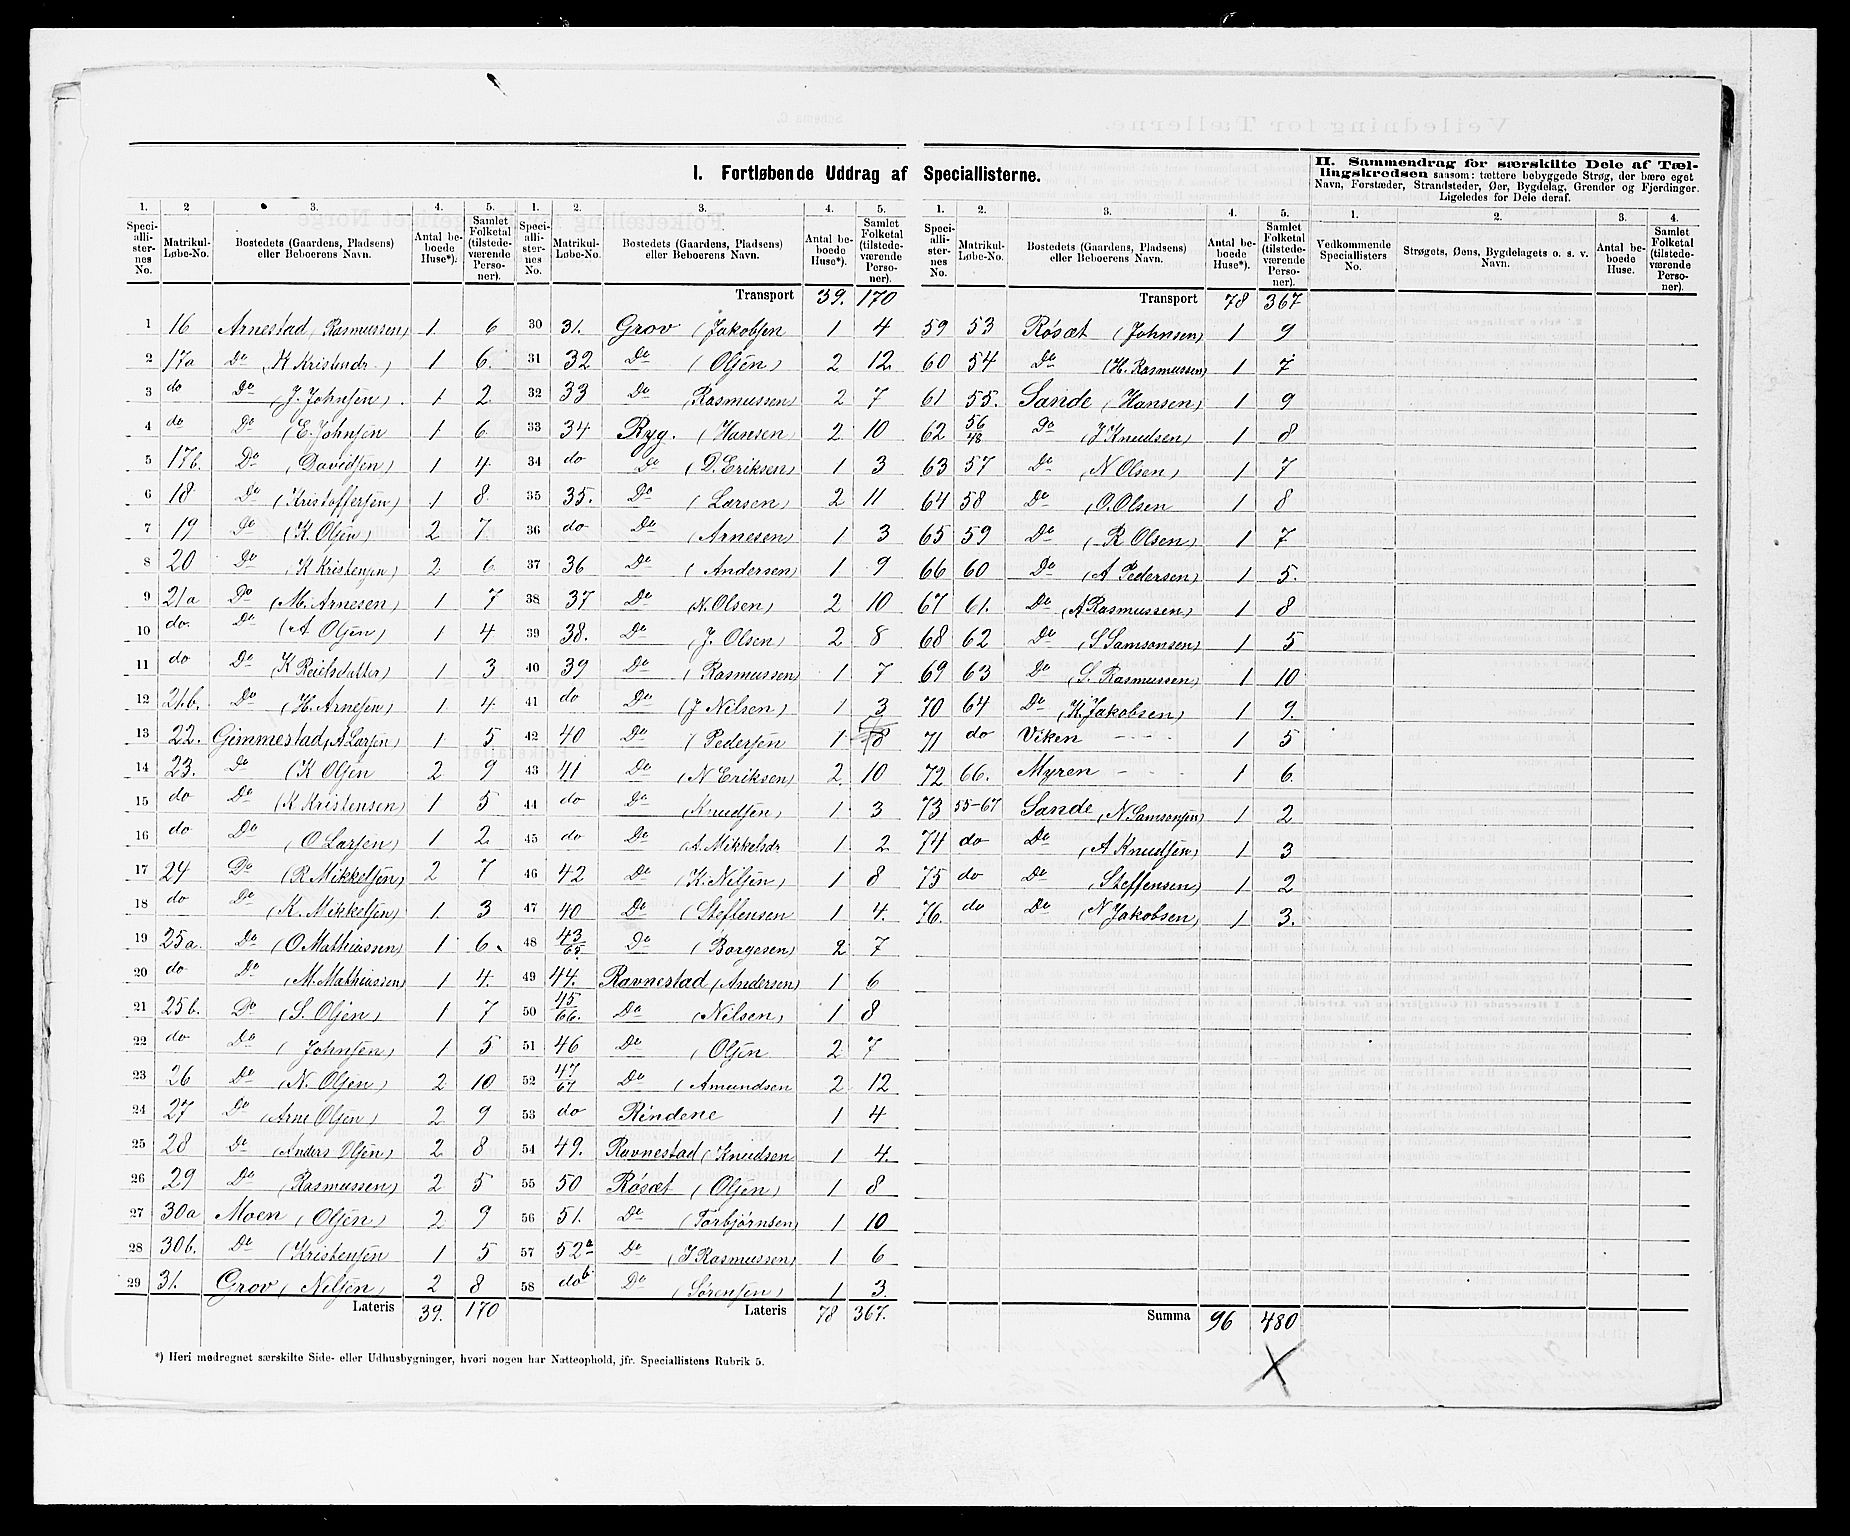 I. Fortløbende Uddrag af Speciallisterne.
II. Sammendrag for særskilte Dele af Tællingskredsen samsom: tættere bebyggede Strøg, der bære eget Navn, Forstæder, Strandsteder, Øer, Bygdelag, Grender og Fjerdinger. Ligeledes for Dele deraf.
1. 2 3. 4. 5. 1. 2. 3. 4. 5. 1. 2. 3. 4. 5. 1. 2. 3. 4.
Speciallisternes No. Matrikul-Løbe-No. Bostedets (Gaardens, Pladsens) eller Beboerens Navn. Antal beboede Huse*). Samlet Folketal (tilstedeværende Personer).
Speciallisternes No. Matrikul-Løbe-No. Bostedets (Gaardens, Pladsens) eller Beboerens Navn. Antal beboede Huse*). Samlet Folketal (tilstedeværende Personer).
Speciallisternes No. Matrikul-Løbe-No. Bostedets (Gaardens, Pladsens) eller Beboerens Navn. Antal beboede Huse*). Samlet Folketal (tilstedeværende Personer).
Vedkommende Speciallisters No. Strøgets, Øens, Bygdelagets o. s. v. Navn. Antal beboede Huse. Samlet Folketal (tilstedeværende Personer).
1 16 Arnestad (Rasmussen) 1 6
2 17a Do (K Kristendr.) 1 6.
3 do Do (J. Johnsen) 1 2
4 do Do (E. Johnsen 1 6
5 17b. Do (Davidsen) 1 4
6 18 Do (Kristoffersen) 1 8
7 19 Do (K. Olsen) 2 7
8 20 Do (K Kristensen) 2 6
9 21a Do (M. Arnesen) 1 7
10 do. Do (A Olsen) 1 4
11 do Do (K Reielsdatter) 1 3
12 21.b. Do (H. Arnesen) 1 4
13 22. Gimmestad (A Larsen) 1 5
14 23. Do (K Olsen 2 9
15 do Do (K Kristensen) 1 5
16 do Do (O Larsen) 1 2
17 24 Do (R Mikkelsen) 2 7
18 do Do (K. Mikkelsen) 1 3
19 25a. Do (O Mathiassen) 1 6.
20 do Do (M. Mathiassen) 1 4.
21 25b. Do (S. Olsen) 1 7
22 do Do (Johnsen) 1 5
23 26 Do (N. Olsen) 2 10
24 27 Do (Arne Olsen) 2 9
25 28 Do (Anders Olsen) 2 8
26 29 Do (Rasmussen) 2 5
27 30a Moen (Olsen) 2 9
28 30b. Do (Kristensen 1 5
29 31. Grov (Nilsen) 2 8
Lateris 39. 170
Transport 39. 170
30 31. Grov (Jakobsen 1 4
31 32 Do (Olsen) 2 12
32 33 Do Rasmussen) 2 7
33 34 Ryg. (Hansen) 2 10
34 do Do (D. Eriksen) 1 3
35 35. Do (Larsen) 2 11
36 do Do (Arnesen) 1 3
37 36 Do (Andersen) 1 9
38 37 Do (N. Olsen) 2 10
39 38. Do (J. Olsen) 2 8
40 39 Do (Rasmussen) 1 7
41 do Do (J Nilsen) 1 3
42 40 Do (Pedersen 1 8
43 41 Do (N Eriksen) 2. 10
44 do Do (Knudsen) 1 3
45 do Do (A. Mikkelsdr 1 2
46 42 Do (K. Nilsen) 1 8
47 40 Do (Steffensen 1 4.
48 43/65 Do (Børgesen) 2 7
49 44. Ravnestad (Andersen) 1 6
50 45/66. Do (Nilsen) 1 8
51 46 Do (Olsen 2 7
52 47/67 Do (Amundsen 2 12
53 do Rindene 1 4
54 49. Ravnestad (Knudsen 1 4.
55 50 Røsæt (Olsen) 1 8
56 51. Do (Torbjørnsen) 1 10
57 52a Do (J Rasmussen) 1 6
58 do b Do (Sørensen) 1 3.
Lateris 78 367.
Transport 78 367
59 53 Røsæt (Johnsen) 1 9
60 54 Do (H. Rasmussen) 1 7
61 55. Sande (Hansen) 1 9
62 56/48 Do (J Knudsen) 1 8
63 57 Do (N Olsen) 1 7
64 58 Do (O. Olsen 1 8
65 59 Do (R Olsen) 1 7
66 60 Do (A Pedersen) 1 5.
67 61. Do (A Rasmussen) 1 8
68 62 Do (S Samsonsen) 1 5
69 63 Do (S. Rasmussen) 1 10
70 64 Do (K. Jakobsen) 1 9.
71 do Viken - - - 1 5
72 66. Myren - - 1 6
73 55-67 Sande (N Samsonsen) 1 2
74 do Do (A Knudsen) 1 3
75 do Do (Steffensen) 1 2
76. do Do (N Jakobsen) 1 3.
Summa 96 480
*) Heri medregnet særskilte Side- eller Udhusbygninger, hvori nogen har Natteophold, jfr. Speciallistens Rubrik 5.